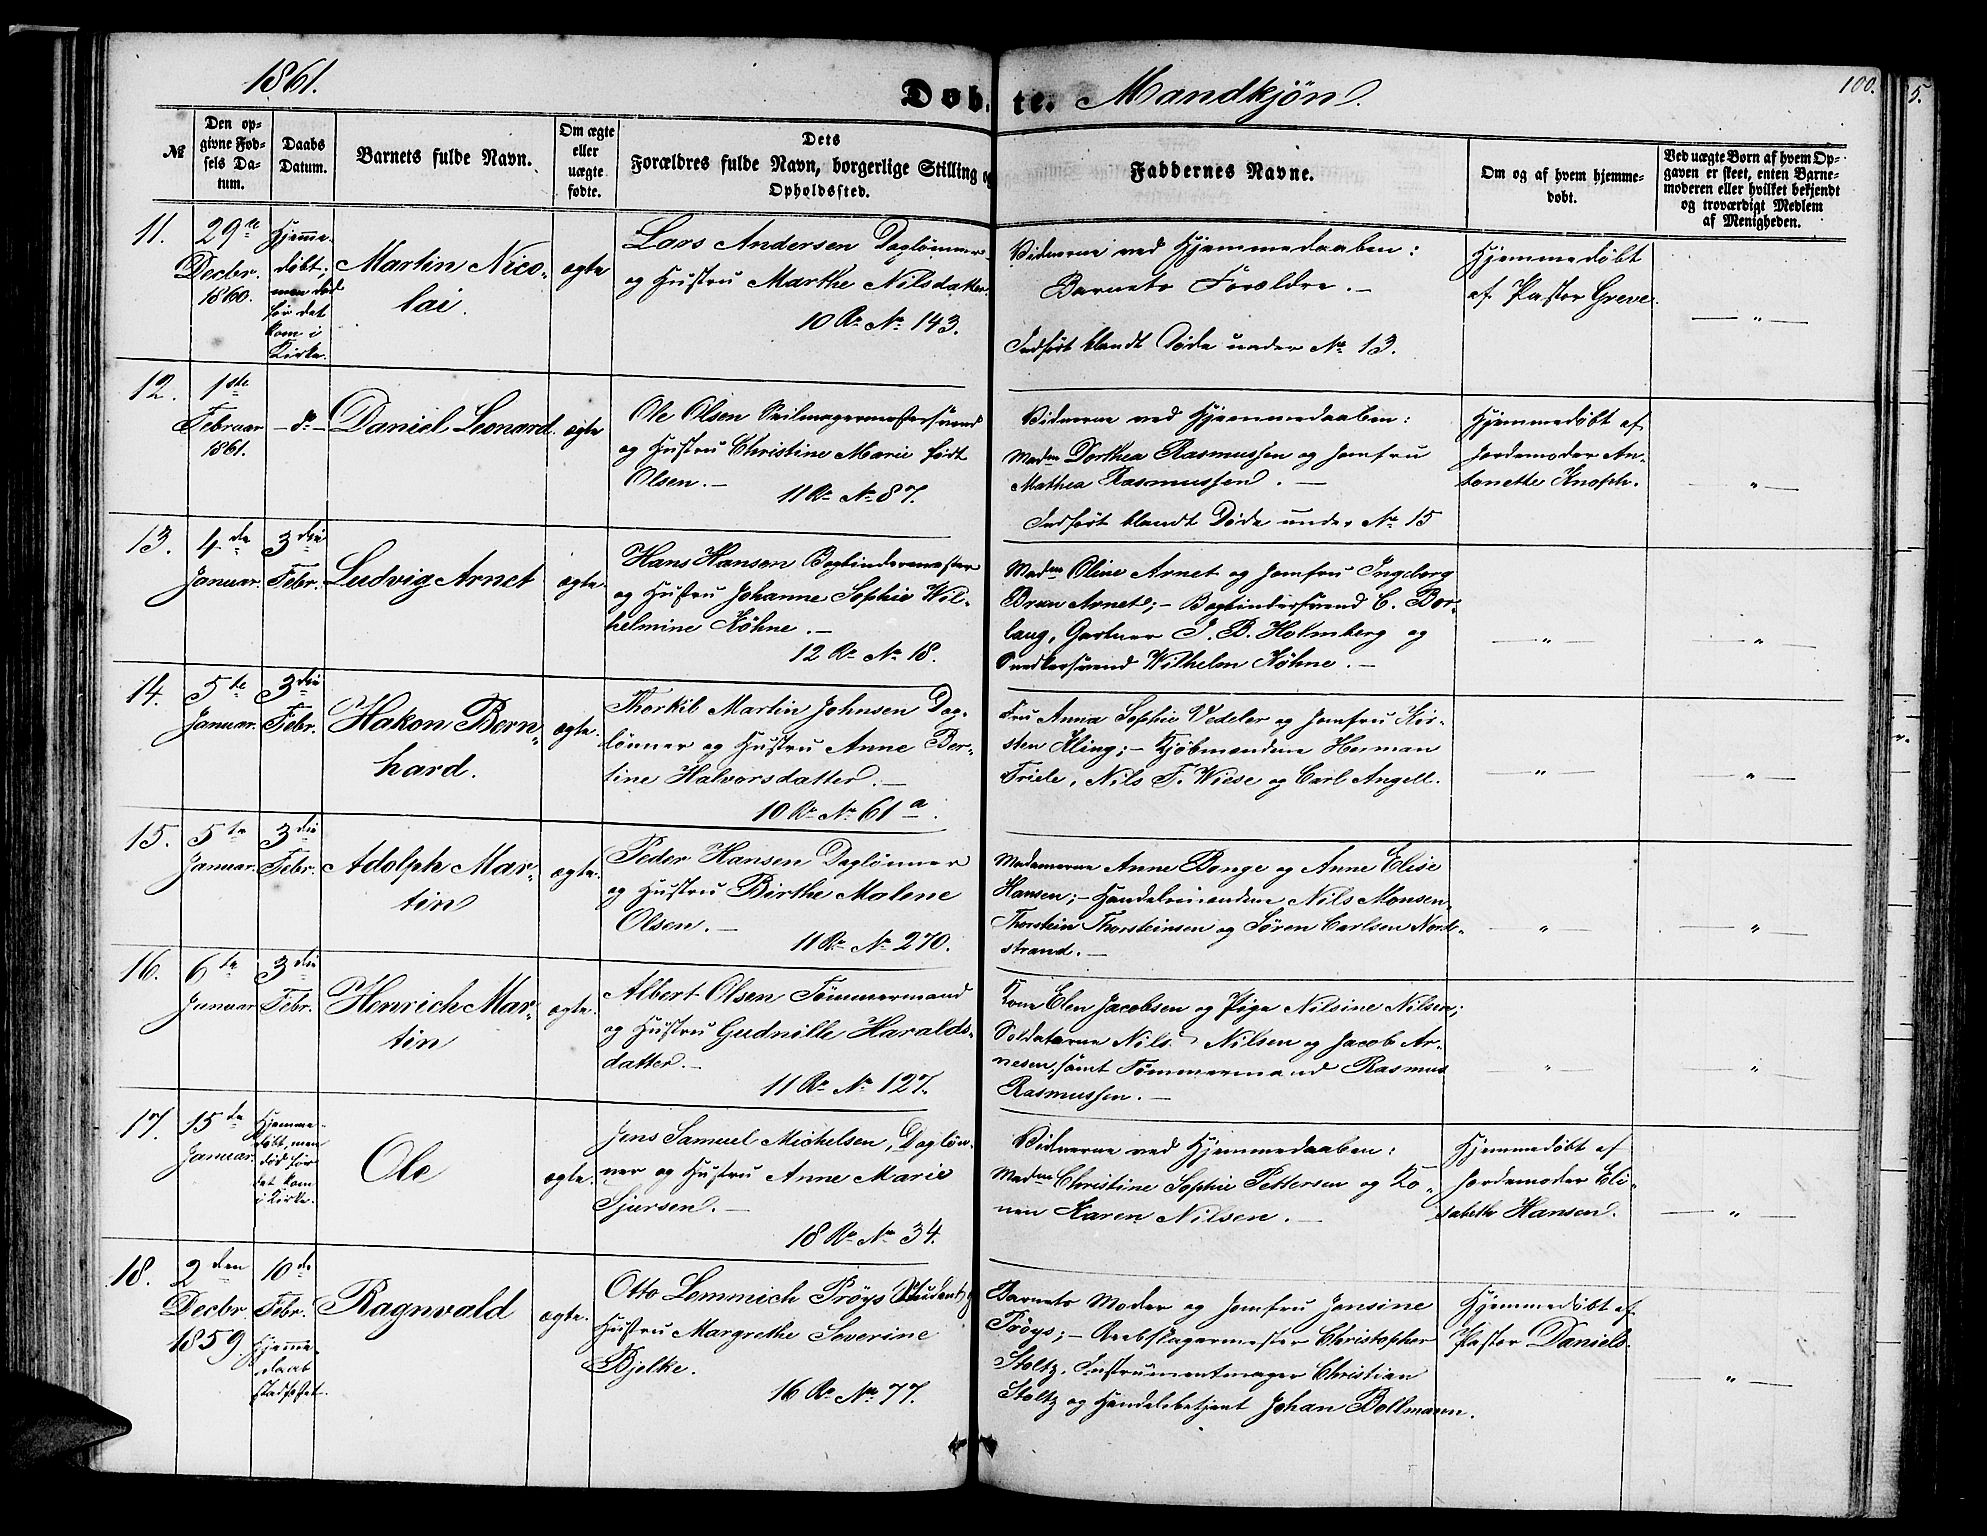 1861.
Døbte. Mandkjøn.
100.
5.
№
Den opgivne Fødsels Datum.
Daabs Datum.
Barnets fulde Navn.
Om ægte eller uægte fødte.
Dets Forældres fulde Navn, borgerlige Stilling og Opholdssted.
Faddernes Navne.
Om og af hvem hjemmedøbt.
Ved uægte Børn af hvem Opgaven er skeet, enten Barnemoderen eller hvilket bekjendt og troværdigt Medlem af Menigheden.
11.
29de
Decbr.
1860.
Hjemme-
døbt;
men død
før det
kom i
Kirke.
Martin Nico-
lai.
ægte
Lars Andersen Daglønner
og Hustru Marthe Nilsdatter.
10 R. No 143.
Vidnerne ved Hjemmedaaben:
Barnets Forældre. —
Indført blandt Døde under No 13.
Hjemmedøbt
af Pastor Greve.
— " —
12.
1ste
Februar
1861.
— do —
Daniel Leonard.
ægte
Ole Olsen Seilmagermestersvend
og Hustru Christine Marie født
Olsen. —
11 R. No 87.
Vidnerne ved Hjemmedaaben:
Madm Dorthea Rasmussen og Jomfru
Mathea Rasmussen. —
Indført blandt Døde under No 15
Hjemmedøbt af
Jordemoder An-
tonette Knoph.
— " —
13.
4de
Januar.
3die
Febr.
Ludvig Arnet
ægte.
Hans Hansen Bogbindermester
og Hustru Johanne Sophie Wil-
helmine Köhne. —
12 R. No 18.
Madm Oline Arnet og Jomfru Ingeborg
Brun Arnet; — Bogbindersvend C. Bor-
laug, Gartner J. B. Holmberg og
Snedkersvend Wilhelm Köhne. —
— " —
— " —
14.
5te
Januar.
3die
Febr.
Hakon Bern-
hard.
ægte.
Thorkil Martin Johnsen Dag-
lønner og Hustru Anne Ber-
tine Halvorsdatter. —
10 R. No 61 a.
Fru Anna Sophie Vedeler og Jomfru Kir-
sten Kling; — Kjøbmændene Herman
Friele, Nils F. Wiese og Carl Angell.
— " —
— " —
15.
5te
Januar.
3die
Febr.
Adolph Mar-
tin
ægte.
Peder Hansen Daglønner
og Hustru Birthe Malene
Olsen. —
11 R. No 270.
Madamerne Anne Bonge og Anne Elise
Hansen; — Handelsmændene Nils Monsen
Thorstein Thorsteinsen og Søren Carlsen Nord-
strand. —
— " —
— " —
16.
6te
Januar
3die
Febr.
Henrich Mar-
tin
ægte.
Albert Olsen Tømmermand
og Hustru Gudnille Haralds-
datter. —
11 R. No 127.
Kone Elen Jacobsen og Pige Nilsine Nilsen;
Soldaterne Nils Nilsen og Jacob Ar-
nesen, samt Tømmermand Rasmus
Rasmussen. —
— " —
— " —
17.
15de
Januar.
Hjemme-
døbt, men
død før
det kom
i Kirke.
Ole
ægte.
Jens Samuel Michelsen, Dagløn-
ner og Hustru Anne Marie
Sjursen. —
18 R. No 34.
Vidnerne ved Hjemmedaaben:
Madm Christine Sophie Pettersen og Ko-
nen Karen Nilsen. —
Hjemmedøbt af
Jordemoder Eli-
sabeth Hansen.
— " —
18.
2den
Decbr
1859.
10de
Febr.
Hjemme-
daab
stadfæstet.
Ragnvald
ægte.
Otto Lemmich Prøys Student og
Hustru Margrethe Severine
Bjelke.
16 R. No 77.
Barnets Moder og Jomfru Jensine
Prøys; — Reebslagermester Christopher
Stoltz, Instrumentmager Christian
Stoltz og Handelsbetjent Johan Bollmann.
Hjemmedøbt af
Pastor Daniels.
— " —